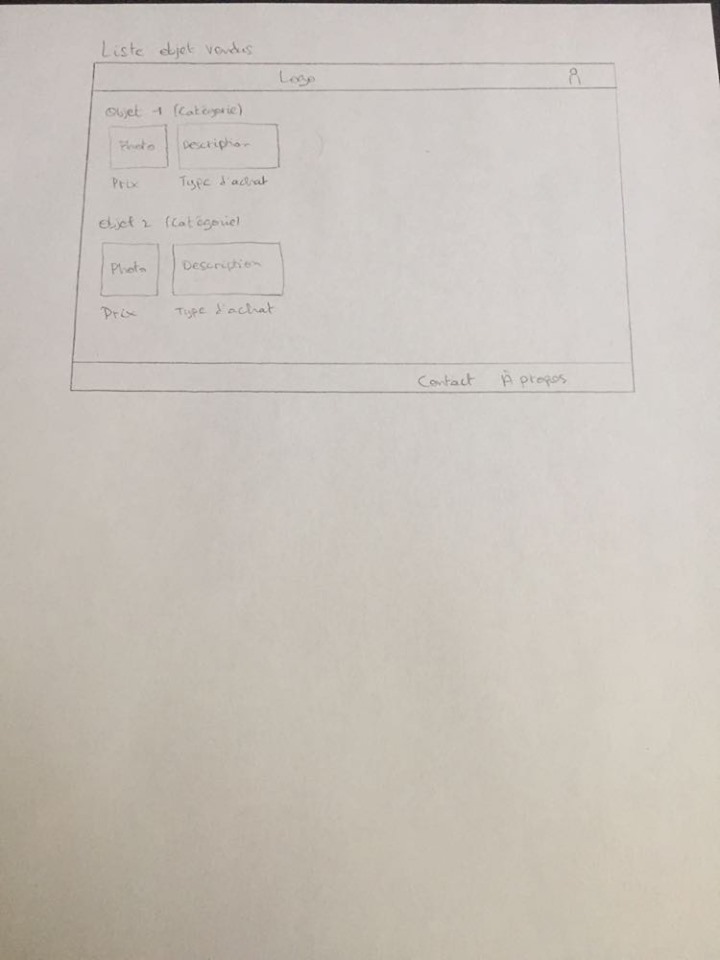 Liste objet vendus
Logo
Objet 1 (Catégorie)
Photo Description
Prix Type d'achat
Objet 2 (Catégorie)
Photo Description
Prix Type d'achat
Contact À propos